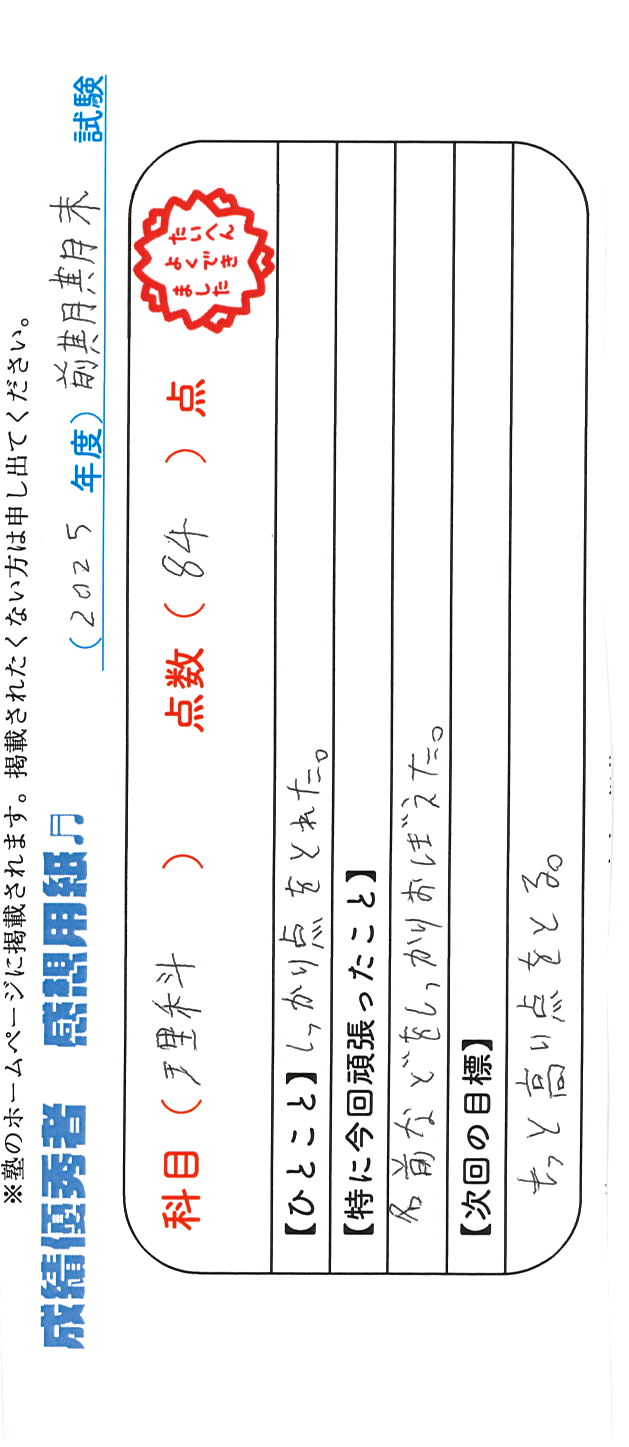 ※塾のホームページに掲載されます。掲載されたくない方は申し出てください。
成績優秀者 感想用紙♬
(2025 年度) 前期期末 試験
科目 ( 理科 ) 点数 ( 84 ) 点
たいへん
よくでき
ました
【ひとこと】しっかり点をとれた。
【特に今回頑張ったこと】
名前などをしっかりおぼえた。
【次回の目標】
もっと高い点をとる。